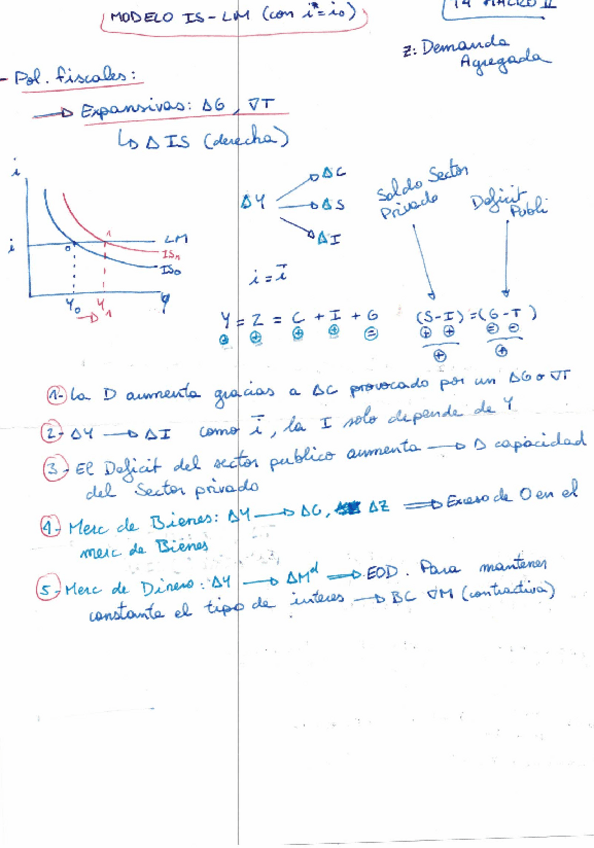 MODELO IS-LM (con i*=i₀)
T4 MACRO II
Z: Demanda Agregada
- Pol. fiscales:
→ Expansivas: ΔG, ∇T
↳ Δ IS (derecha)
i
i
LM
IS₁
IS₀
0
1
Y₀ → Y₁
Y
ΔY
ΔC
ΔS
ΔI
i = i̅
Saldo Sector Privado
Deficit Publi
Y = Z = C + I + G
(S-I) = (G-T)
⊕ ⊕ ⊕ ⊕ ⊜
⊕ ⊕ ⊜ ⊖
⊕ ⊕
1- La D aumenta gracias a ΔC provocado por un ΔG o ∇T
2- ΔY → ΔI como i̅, la I solo depende de Y
3- El Deficit del sector publico aumenta → Δ capacidad
del Sector privado
4- Merc de Bienes: ΔY → ΔC, ΔZ ⇒ Exceso de O en el
merc de Bienes
5- Merc de Dinero: ΔY → ΔMᵈ ⇒ EOD. Para mantener
constante el tipo de interes → BC ∇M (contractiva)